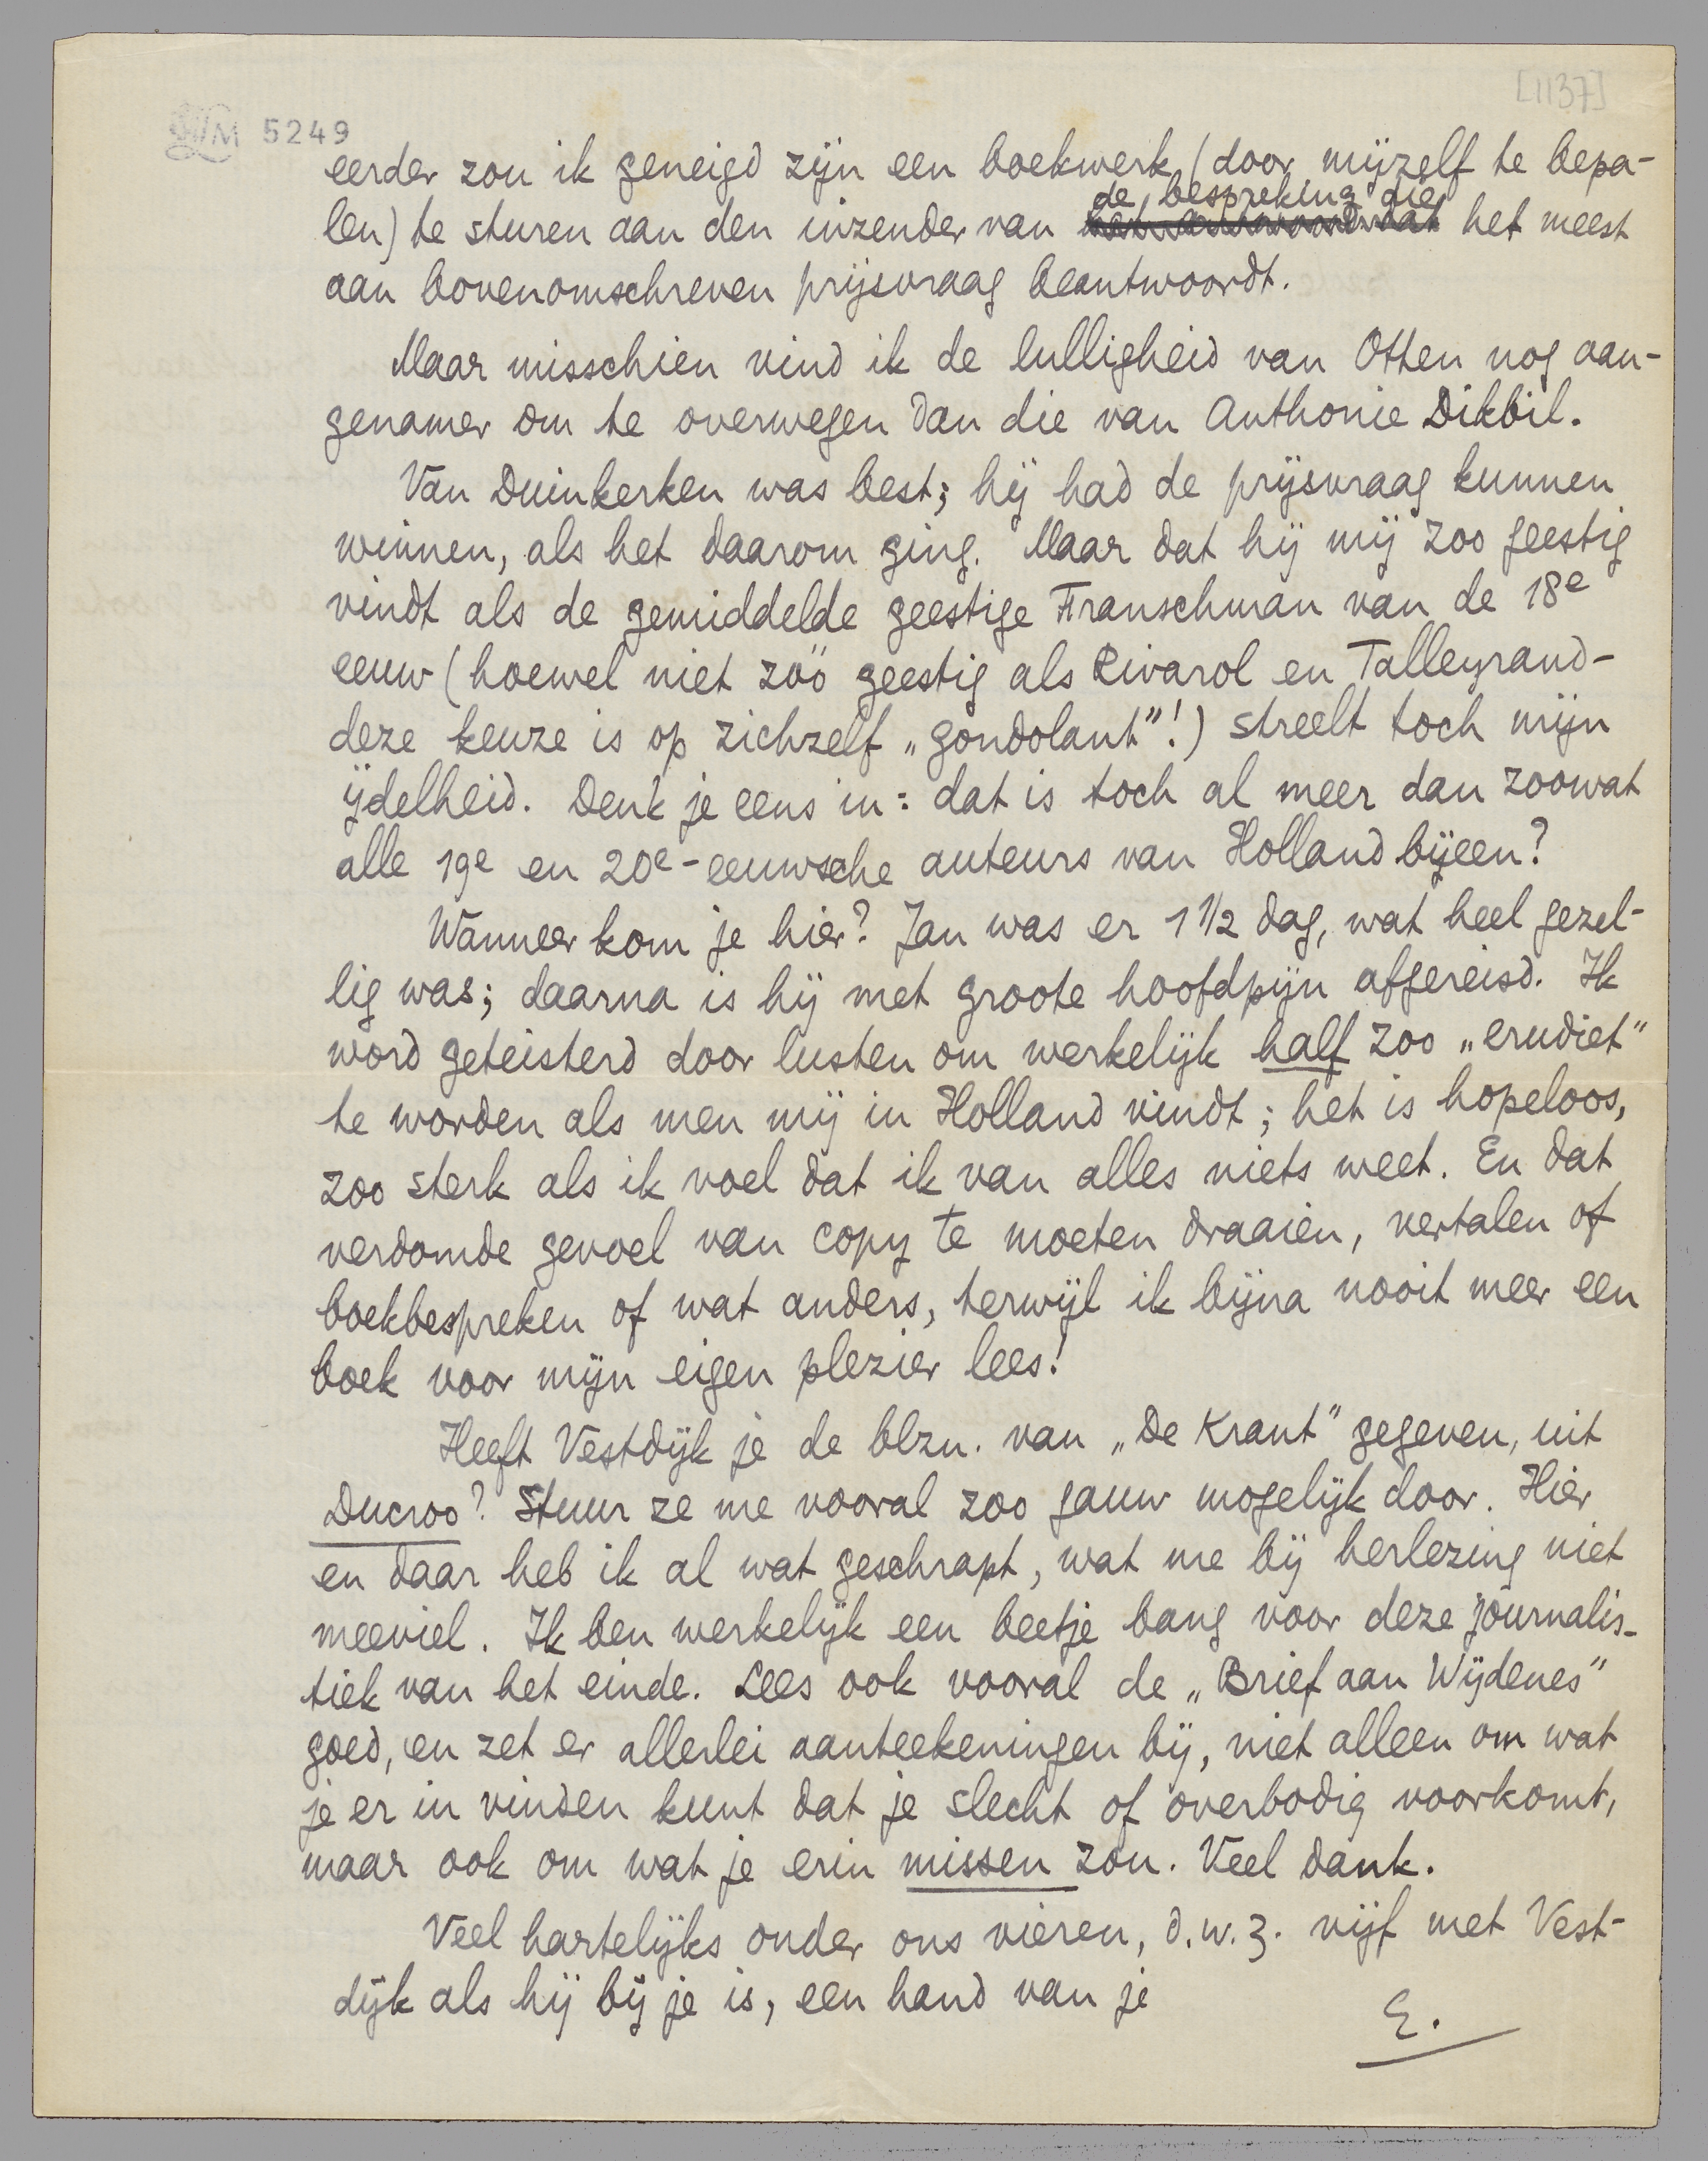 [1137]
LM 5249
eerder zou ik geneigd zijn een boekwerk (door mijzelf te bepa-
de bespreking die
len) te sturen aan den inzender van het antwoord dat het meest
aan bovenomschreven prijsvraag beantwoordt.
Maar misschien vind ik de lulligheid van Otten nog aan-
genamer om te overwegen dan die van Anthonie Dikbil.
Van Duinkerken was best; hij had de prijsvraag kunnen
winnen, als het daarom ging. Maar dat hij mij zoo geestig
vindt als de gemiddelde geestige Franschman van de 18e
eeuw (hoewel niet zóó geestig als Rivarol en Talleyrand-
deze keuze is op zichzelf „gondolant”!) streelt toch mijn
ijdelheid. Denk je eens in: dat is toch al meer dan zoowat
alle 19e en 20e-eeuwsche auteurs van Holland bijeen?
Wanneer kom je hier? Jan was er 1 1/2 dag, wat heel gezel-
lig was; daarna is hij met groote hoofdpijn afgereisd. Ik
word geteisterd door lusten om werkelijk half zoo „erudiet”
te worden als men mij in Holland vindt; het is hopeloos,
zoo sterk als ik voel dat ik van alles niets weet. En dat
verdomde gevoel van copy te moeten draaien, vertalen of
boekbespreken of wat anders, terwijl ik bijna nooit meer een
boek voor mijn eigen plezier lees!
Heeft Vestdijk je de blzn. van „De Krant” gegeven, uit
Ducroo? Stuur ze me vooral zoo gauw mogelijk door. Hier
en daar heb ik al wat geschrapt, wat me bij herlezing niet
meeviel. Ik ben werkelijk een beetje bang voor deze journalis-
tiek van het einde. Lees ook vooral de „Brief aan Wijdenes”
goed, en zet er allerlei aanteekeningen bij, niet alleen om wat
je er in vinden kunt dat je slecht of overbodig voorkomt,
maar ook om wat je erin missen zou. Veel dank.
Veel hartelijks onder ons vieren, d.w.z. vijf met Vest-
dijk als hij bij je is, een hand van je
E.